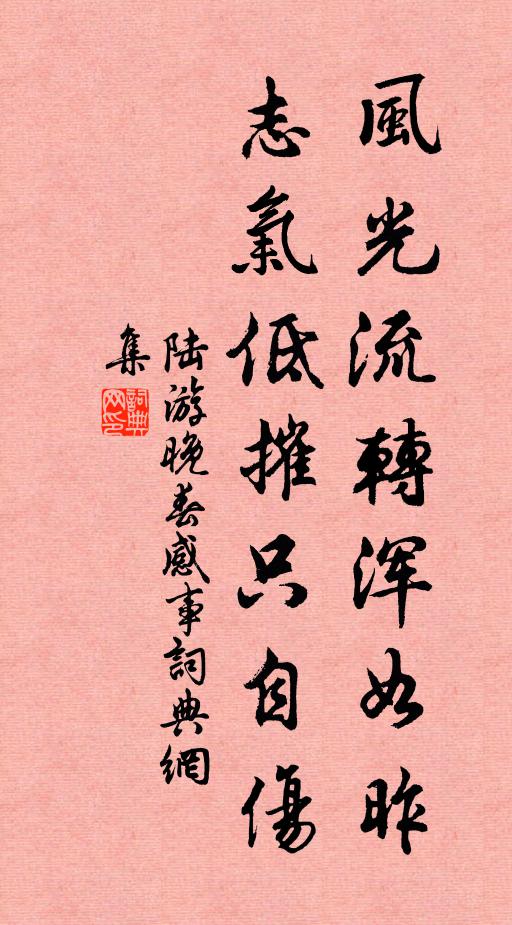 風光流轉渾如昨
志氣低摧只自傷
陆游晚春感事詞典網
集
詞典
网印